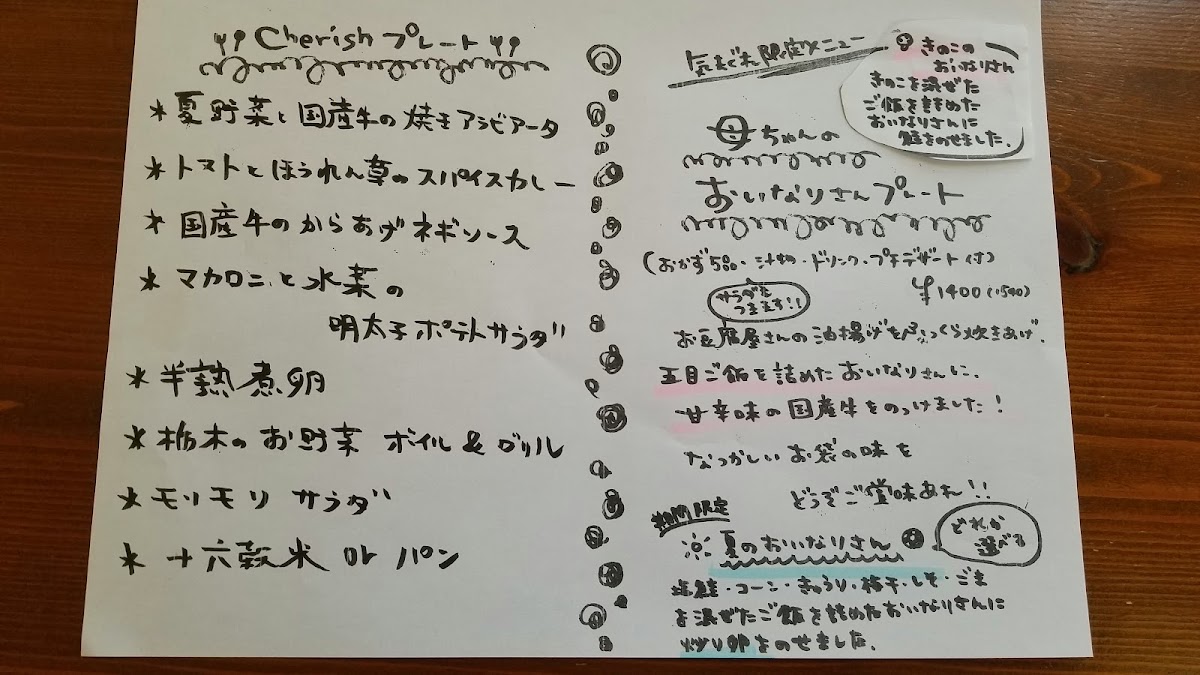 Cherish プレート
* 夏野菜と国産牛の焼きアラビアータ
* トマトとほうれん草のスパイスカレー
* 国産牛のからあげネギソース
* マカロニと水菜の
明太子ポテトサラダ
* 半熟煮卵
* 栃木のお野菜 ボイル & グリル
* モリモリ サラダ
* 十六穀米 or パン
気まぐれ限定メニュー
きのこの
おいなりさん
きのこを混ぜた
ご飯をつめた
おいなりさんに
鮭をのせました。
母ちゃんの
おいなりさんプレート
(おかず5品・汁物・ドリンク・プチデザート付)
サラダも
つきます!!
¥1400(1540)
お豆腐屋さんの油揚げをふっくら炊きあげ、
五目ご飯を詰めたおいなりさんに、
甘辛味の国産牛をのっけました!
なつかしいお袋の味を
どうぞご賞味あれ!!
期間限定
夏のおいなりさん
どれか
選べる
塩鮭・コーン・きゅうり・梅干・しそ・ごま
を混ぜたご飯を詰めたおいなりさんに
炒り卵をのせました。